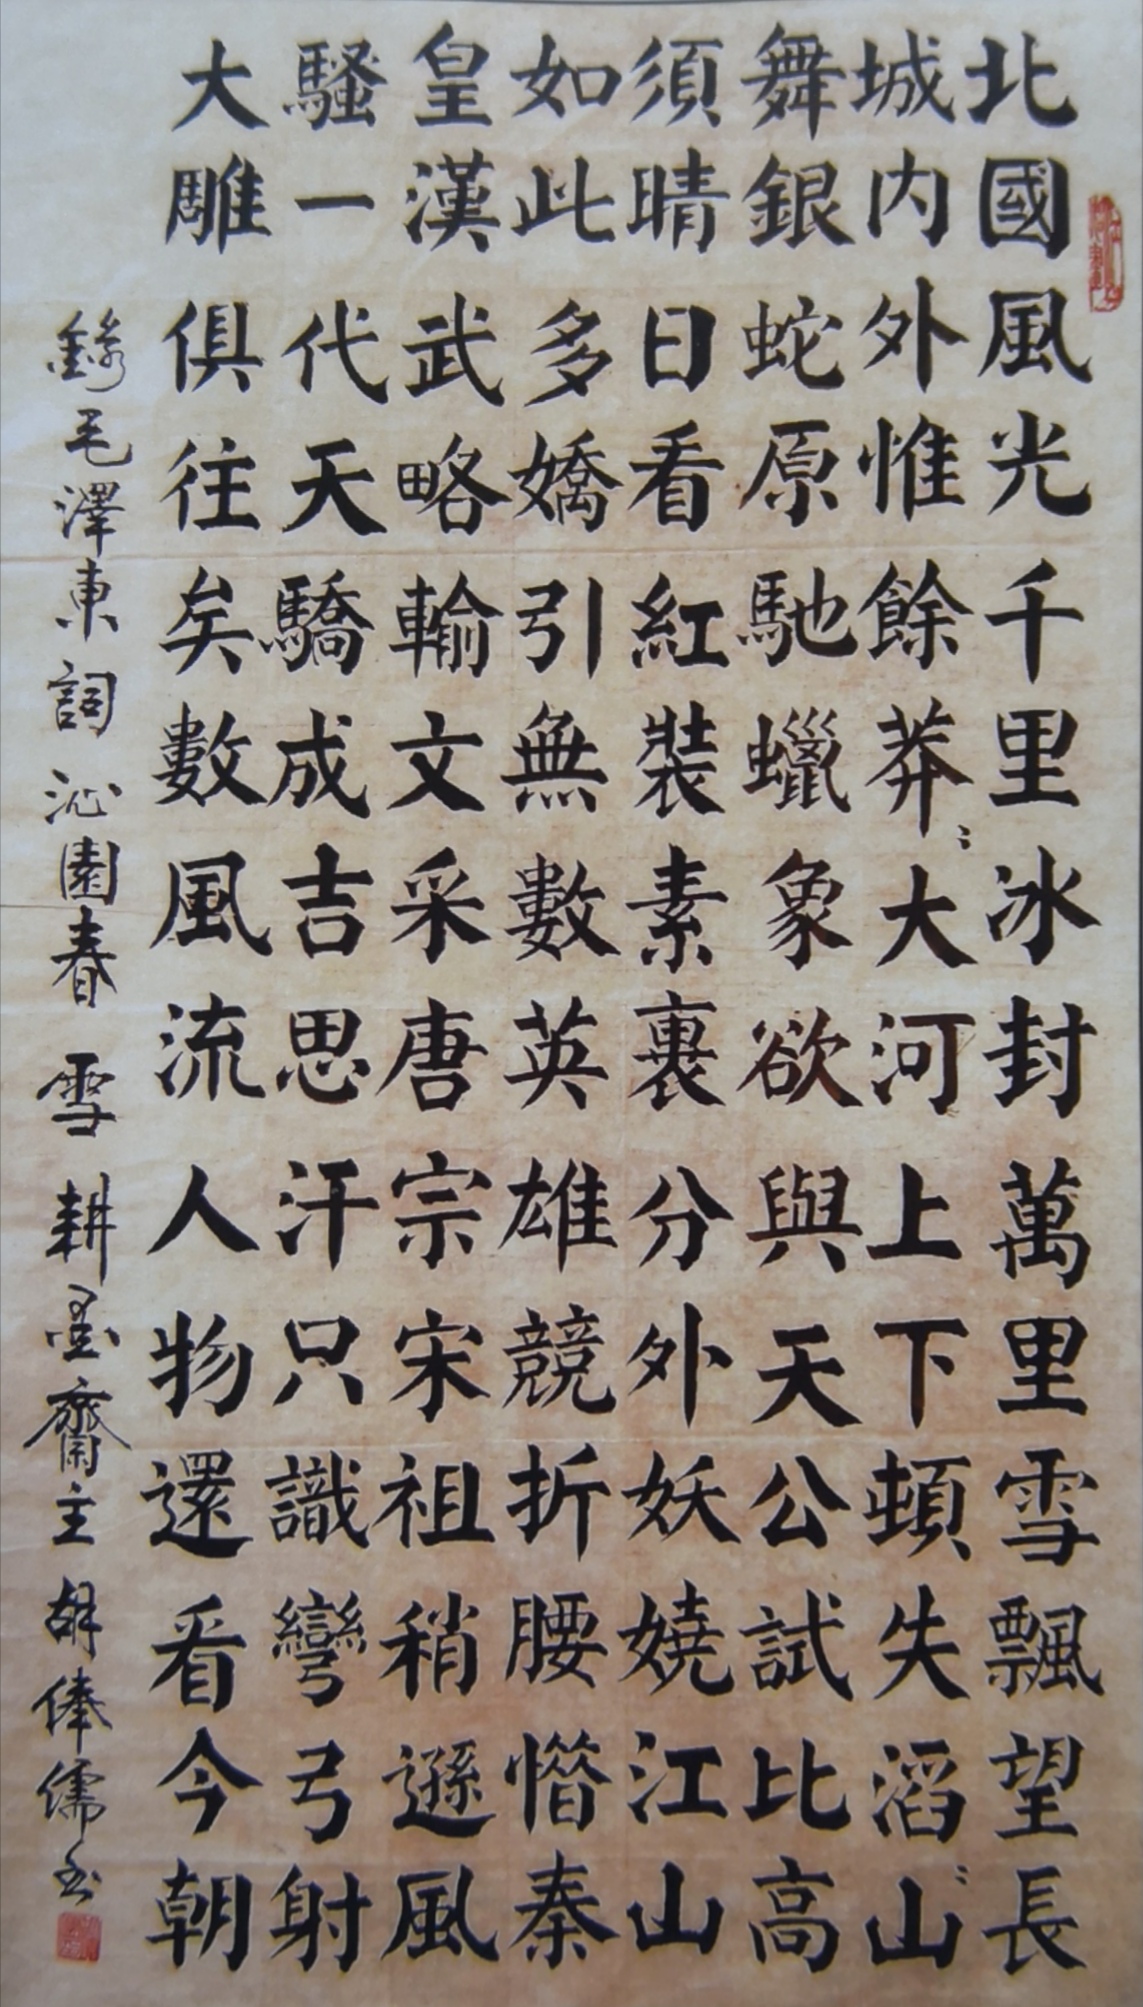 北國風光千里冰封萬里雪飄望長
城内外惟餘莽々大河上下頓失滔々山
舞銀蛇原馳蠟象欲與天公試比高
須晴日看紅裝素裹分外妖嬈江山
如此多嬌引無數英雄競折腰惜秦
皇漢武略輸文采唐宗宋祖稍遜風
騷一代天驕成吉思汗只識彎弓射
大雕俱往矣數風流人物還看今朝
錄毛澤東詞沁園春 雪 耕墨齋主 胡俸儒书